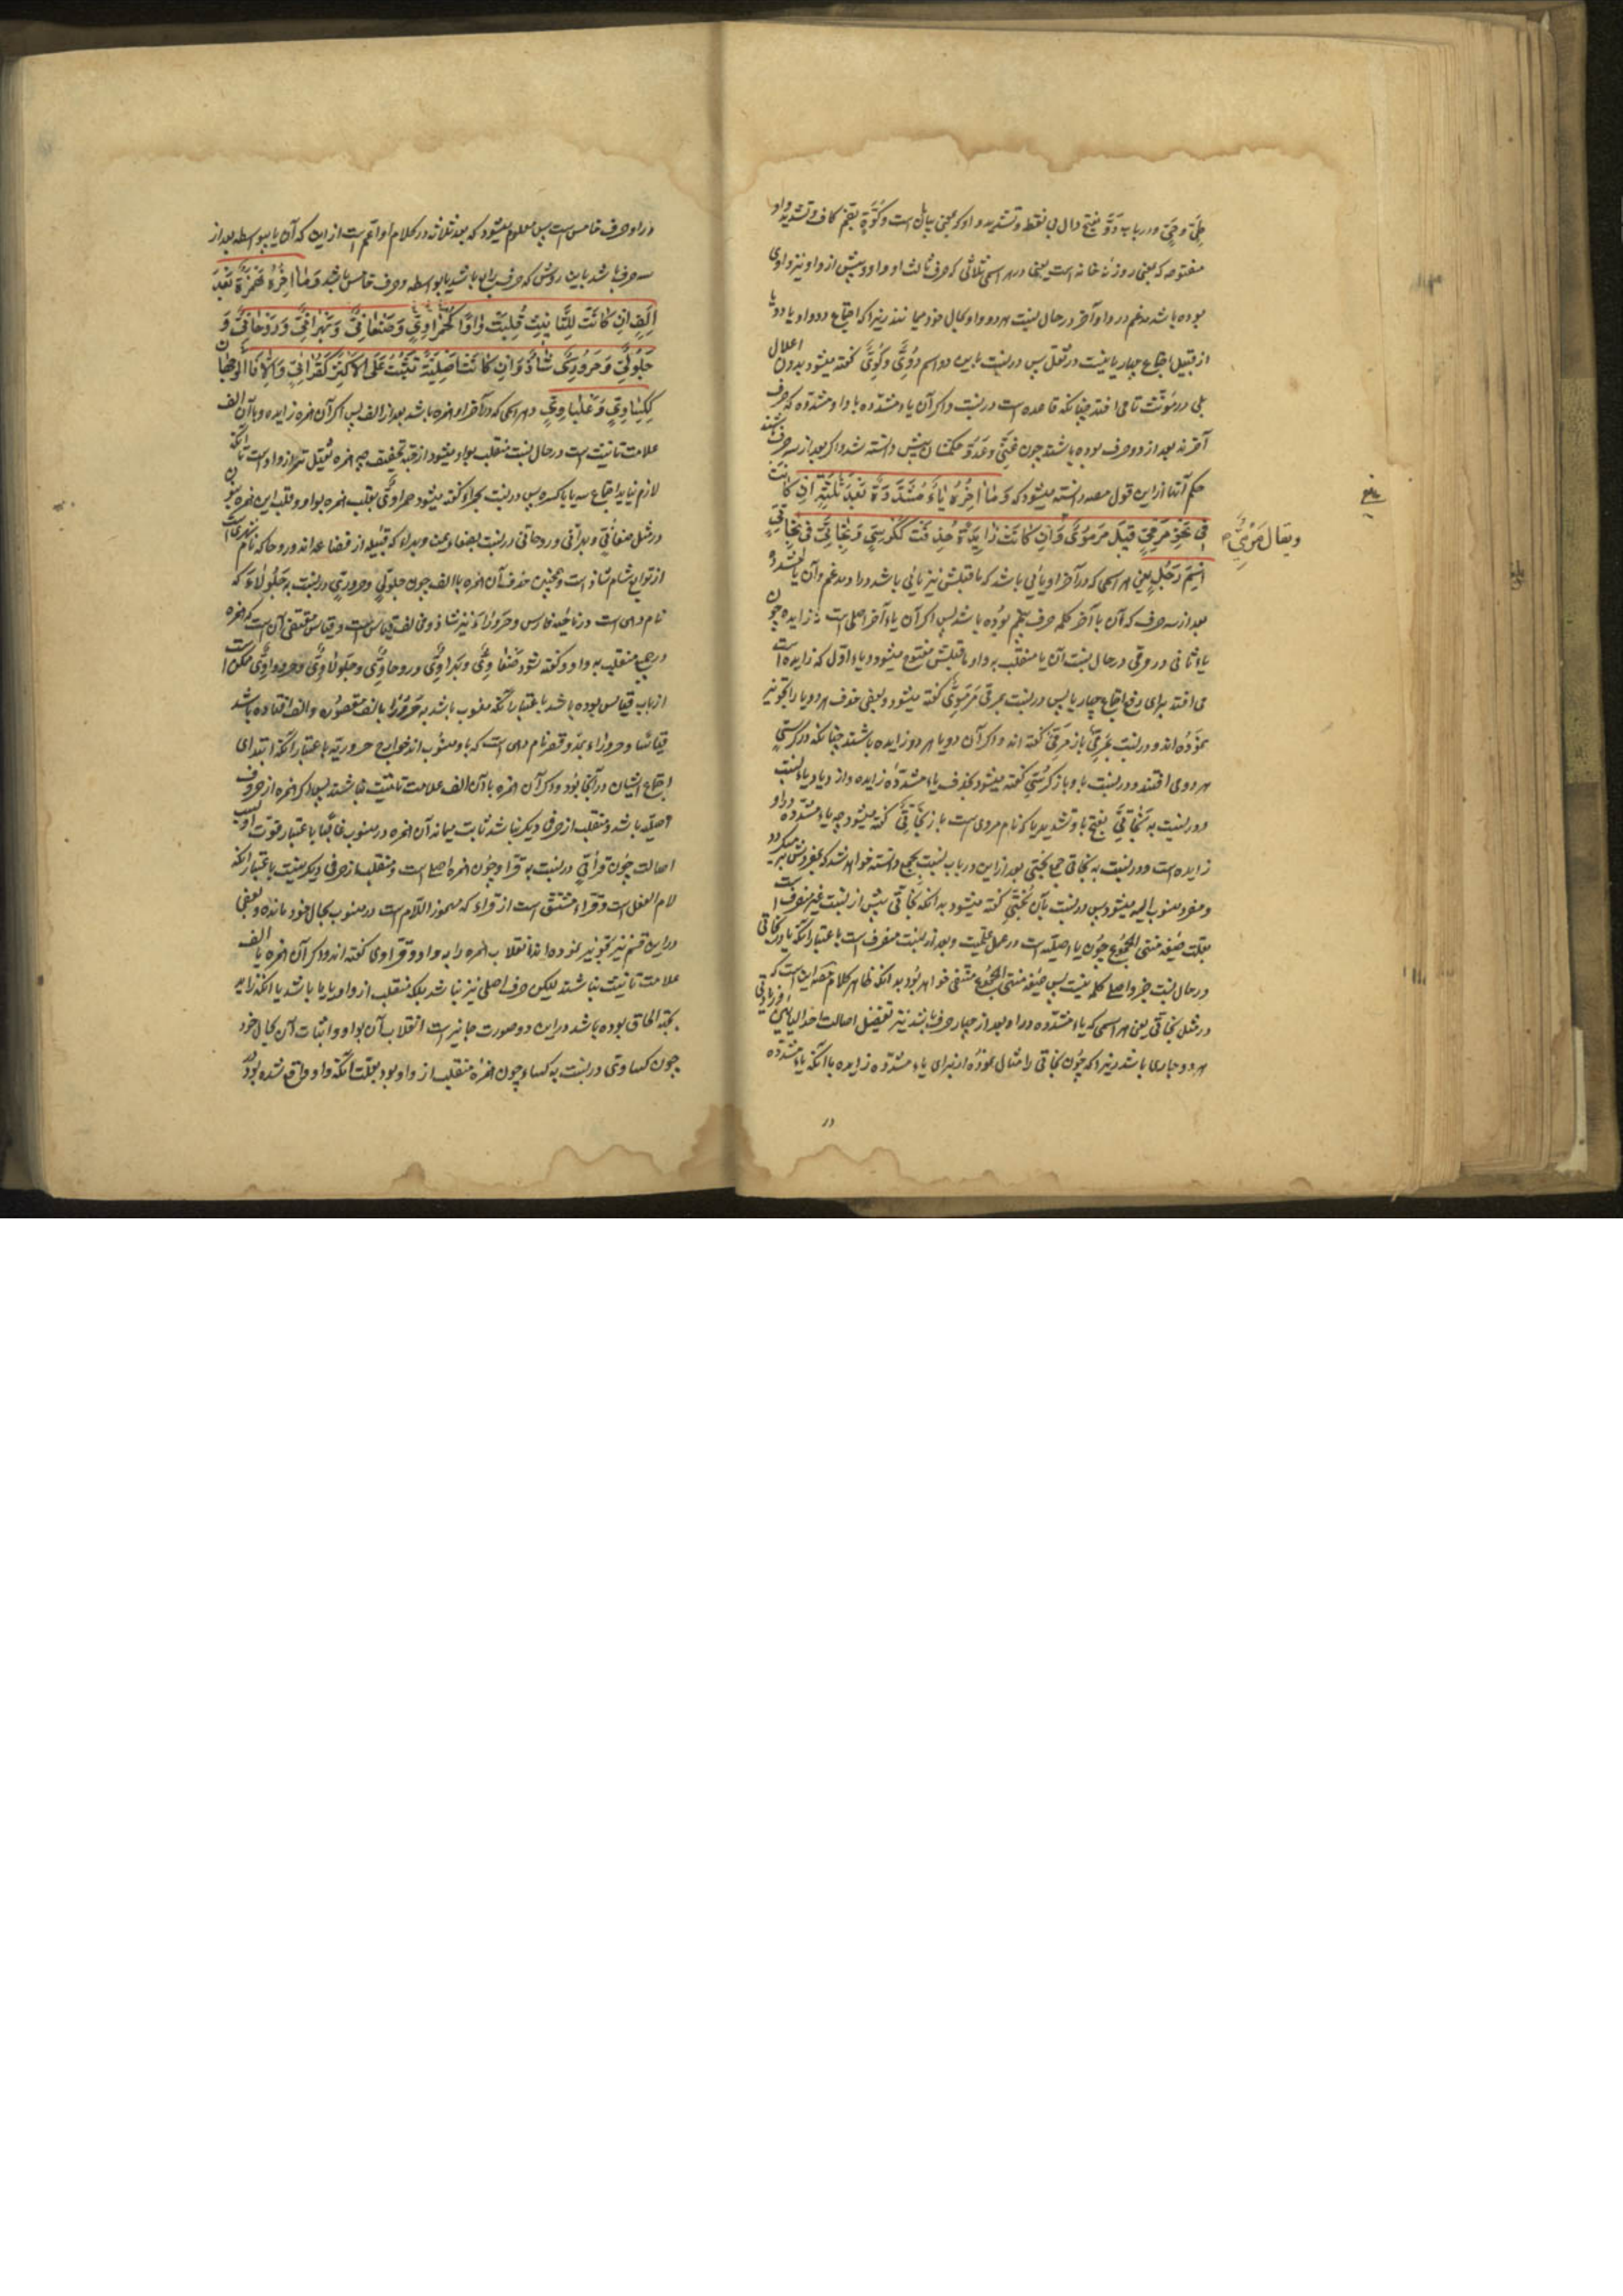 حیّ و حیّ و در باب دوّ بفتح دال بی نقطه و تشدید واو که بمعنی بیابان است و کوّة بضم کاف و تشدید واو
مفتوحه که بمعنی روزنهٔ خانه است یعنی در هر اسمی ثلاثی که حرف ثالث او واو و پیش از واو نیز واوی
بوده باشد مدغم در واو آخر در حال نسبت هر دو واو بحال خود میمانند زیرا که اجتماع دو واو با دو یا
از قبیل اجتماع چهار یا نیست در ثقل پس در نسبت باین دو اسم دوّیّ و کوّیّ گفته میشود بدون اعلال
بلی در مؤنث تا می افتد چنانکه قاعده است در نسبت و اگر آن یاء مشدده یا واو مشدده که حرف
آخرند بعد از دو حرف بوده باشند چون غنیّ و عدوّ حکمشان پیش دانسته شد و اگر بعد از سه حرف باشند
حکم آنها از این قول مصه دانسته میشود که وَ مٰا اٰخِرُهُ یٰاءٌ مُشَدَّدَةٌ بَعْدَ ثَلٰثَةٍ اِنْ کٰانَتْ
فی نَحْوِ مَرْمِیٍّ قِیلَ مَرْمَوِیٌّ وَ اِنْ کٰانَتْ زٰایِدَةً حُذِفَتْ کَکُرْسِیٍّ وَ بَخٰاتِیٍّ فی بَخٰاتِیِّ
ویقال مَرْمِیٌّ
اِسْمَ رَجُلٍ یعنی هر اسمی که در آخر او یائی باشد که ماقبلش نیز یائی باشد و در او مدغم و آن یا مشدده
بعد از سه حرف که آن با آخر کلمه حرف پنجم بوده باشد پس اگر آن یاء آخر اصلی است نه زایده چون
یاء ثانی در مرمی در حال نسبت آن یا منقلب بواو و ماقبلش مفتوح میشود و یاء اول که زایده است
می افتد برای رفع اجتماع چهار یا پس در نسبت بمرمی مرمویّ گفته میشود و بعضی حذف هر دو یا را تجویز
نموده اند و در نسبت بمرمیّ باز مرمیّ گفته اند و اگر آن دو یا هر دو زایده باشند چنانکه در کرسیّ
هر دو می افتند و در نسبت باو باز کرسیّ گفته میشود بحذف یاء مشددهٔ زایده و ازدیاد یاء نسبت
و در نسبت به بخاتیّ بفتح با و تشدید یا که نام مردی است باز بخاتیّ گفته میشود چه یاء مشدده در او
زایده است و در نسبت به بخاتی جمع بختی بعد از این در باب نسبت بجمع دانسته خواهد شد که بمفردش بر میگردد
و مفرد منسوب الیه میشود پس در نسبت بآن بختیّ گفته میشود بدانکه بخاتی پیش از نسبت غیر منصرف است
بعلت صیغهٔ منتهی الجموع چون یا اصلیه است در عمل علمیت و بعد از نسبت منصرف است باعتبار آنکه یا در بخاتی
در حال نسبت جزو اصل کلمه نیست پس صیغهٔ منتهی الجموع منتفی خواهد بود بدانکه ظاهر کلام مصه این است که
در مثل بخاتی یعنی هر اسمی که یاء مشدده در او بعد از چهار حرف باشند نیز تفصیل اصالت احد الیائین و زیادتی
هر دو جاری باشد زیرا که چون بخاتی را مثال نموده از برای یاء مشدده زایده با آنکه یاء مشدده
در
در او حرف خامس است پس معلوم میشود که بعد ثلاثه در کلام او اعم است از این که آن یا بواسطه بعد از
سه حرف باشد باین روش که حرف رابع باشد یا بواسطه و حرف خامس باشد وَ مٰا اٰخِرُهُ هَمْزَةٌ بَعْدَ
اَلِفٍ اِنْ کٰانَتْ لِلتَّأْنِیثِ قُلِبَتْ وٰاوًا کَحَمْرٰاوِیٍّ وَ صَنْعٰانِیٌّ وَ بَهْرٰانِیٌّ وَ رَوْحٰانِیٌّ وَ
جَلُولِیٌّ وَ حَرُورِیٌّ شٰاذٌّ وَ اِنْ کٰانَتْ اَصْلِیَّةً تَثْبُتُ عَلَی الْاَکْثَرِ کَقُرّٰائِیٍّ وَ اِلّٰا فَالْوَجْهٰانِ
کَکِسٰاوِیٍّ وَ عِلْبٰاوِیٍّ و هر اسمی که در آخر او همزه باشد بعد از الف پس اگر آن همزه زایده و با آن الف
علامت تانیث است در حال نسبت منقلب بواو میشود از جهة تخفیف چه همزه ثقیل تر از واو است تا آنکه
لازم نیاید اجتماع سه یا با کسره پس در نسبت بحمراء گفته میشود حمراویّ بقلب همزه بواو و قلب این همزه بنون
در مثل صنعانیّ و بهرانی و روحانی در نسبت بصنعاء یمن و بهراء که قبیله از قضاعه اند و روحا که نام شهری است
از توابع شام شاذ است و همچنین حذف آن همزه با الف چون جلولیّ و حروریّ در نسبت به جلولاء که
نام دهی است در ناحیهٔ فارس و حروراء نیز شاذ و مخالف قیاس است و قیاس مقتضی آن است که همزه
در جمیع منقلب به واو و گفته شود صنعاویّ و بهراویّ و روحاویّ و جلولاویّ و حروراویّ ممکن است
از باب قیاس بوده باشد باعتبار آنکه منسوب باشد به حرورا بالف مقصوره و الف افتاده باشد
قیاسا و حروراء بمد و قصر نام دهی است که باو منسوب اند خوارج حروریه باعتبار آنکه ابتدای
اجتماع ایشان در آنجا بود و اگر آن همزه با آن الف علامت تانیث نباشند پس اگر همزه از حروف
اصلیه باشد و منقلب از حرفی دیگر نباشد ثابت میماند آن همزه در منسوب غالبا باعتبار قوت او بسبب
اصالت چون قرائیّ در نسبت به قراء چون همزه اصلی است و منقلب از حرفی دیگر نیست باعتبار آنکه
لام الفعل است و قراء مشتق است از قراء که مهموز اللام است در منسوب بحال خود مانده و بعضی
در این قسم نیز تجویز نموده اند انقلاب همزه را به واو و قراوی گفته اند و اگر آن همزه با الف
علامت تانیث نباشند لیکن حرف اصلی نیز نباشد بلکه منقلب از واو یا یا باشد یا آنکه زاید
بجهة الحاق بوده باشد در این دو صورت جایز است انقلاب آن بواو و اثبات آن بحال خود
چون کساوی در نسبت به کساء چون همزه منقلب از واو بود بعلت آنکه واو واقع شده بود در